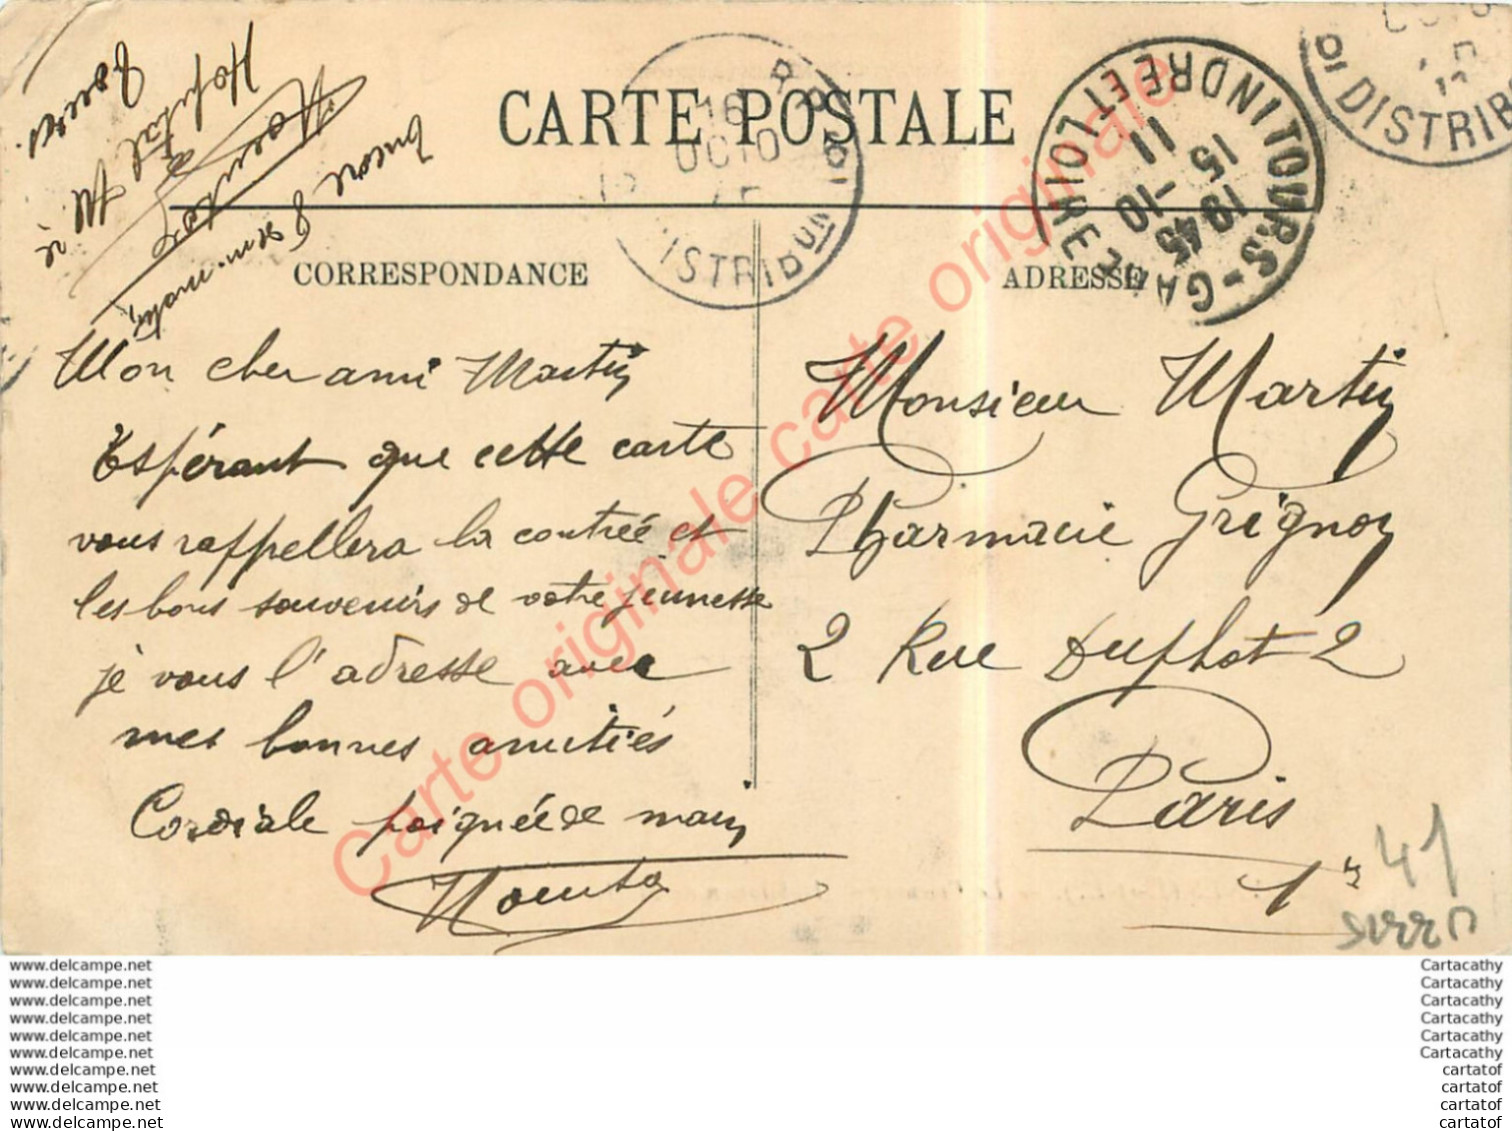 CARTE POSTALE
CORRESPONDANCE
ADRESSE
Mon cher ami Martin
Espérant que cette carte
vous rappellera la contrée et
les bons souvenirs de votre jeunesse
je vous l'adresse avec
mes bonnes amitiés
Cordiale poignée de main
Monsieur Martin
Pharmacie Grignon
2 Rue Duphot 2
Paris
1er
41
encore
Hopital
à
TOURS-GARE INDRE ET LOIRE
19 45
15 -10
11
16
OCTO
DISTRIB
Carte originale carte originale carte originale
www.delcampe.net
www.delcampe.net
www.delcampe.net
www.delcampe.net
www.delcampe.net
www.delcampe.net
www.delcampe.net
www.delcampe.net
www.delcampe.net
www.delcampe.net
Cartacathy
Cartacathy
Cartacathy
Cartacathy
Cartacathy
Cartacathy
cartatof
cartatof
cartatof
cartatof